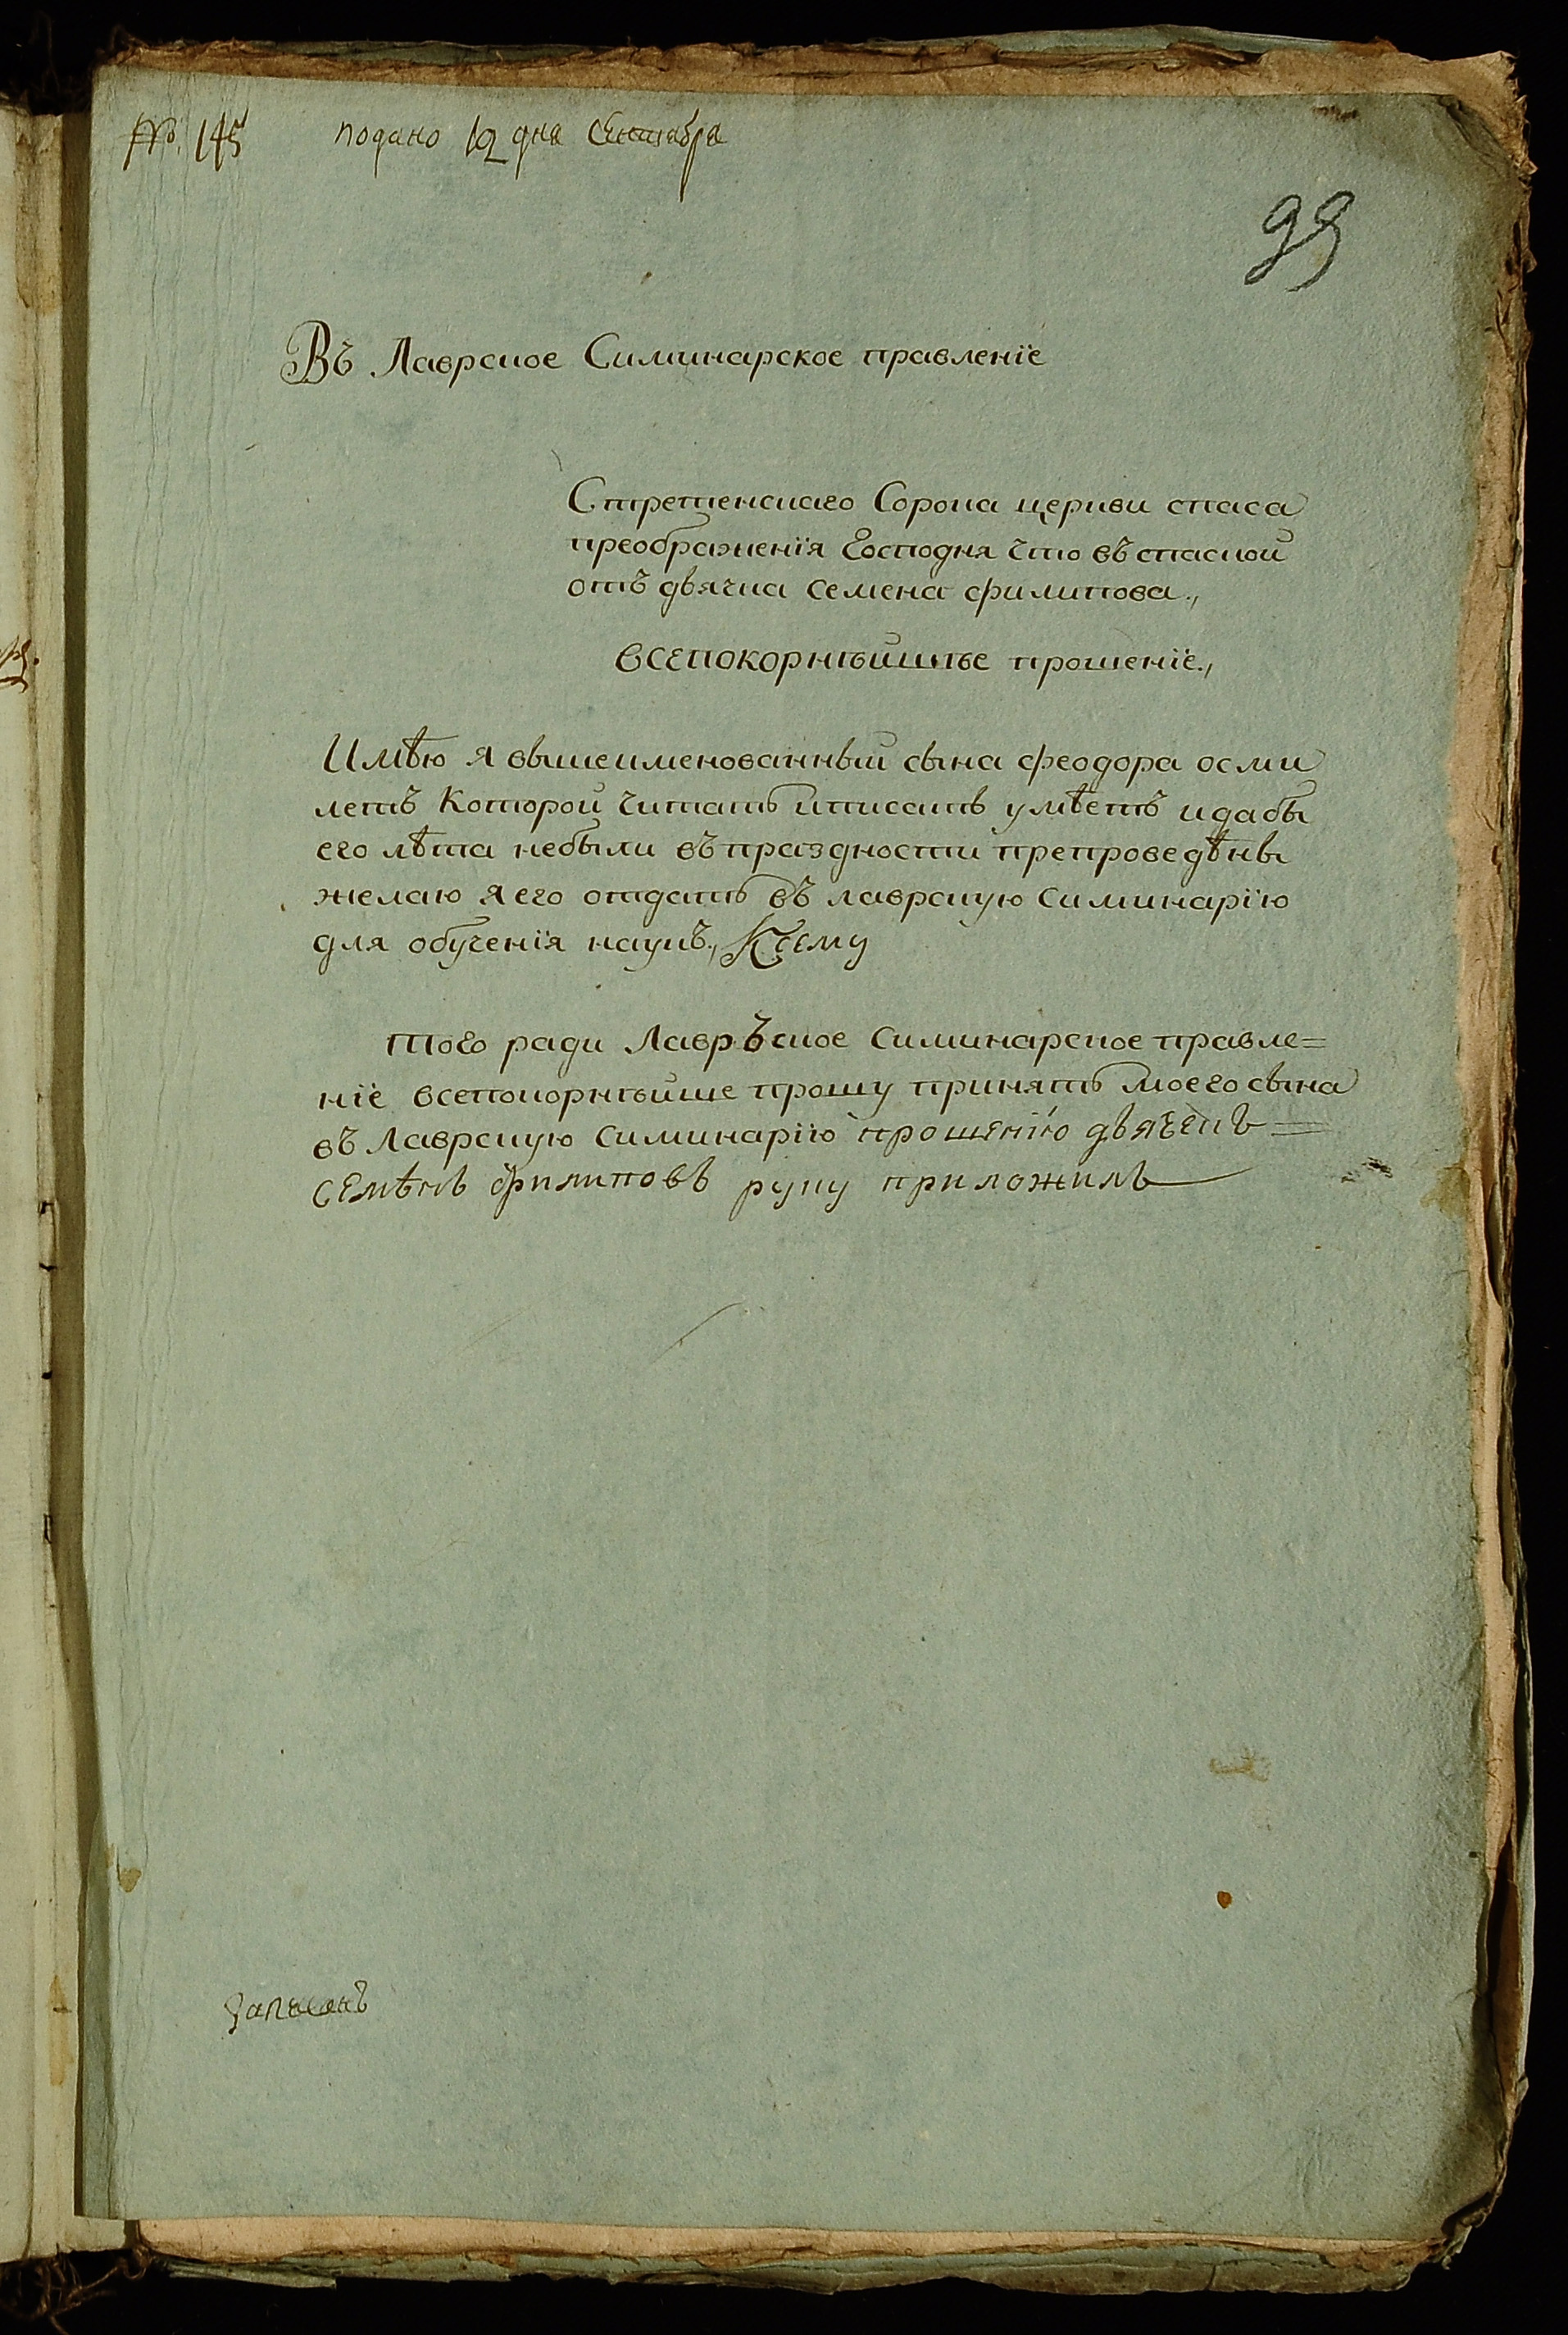 № 145 подано 12 дня Сентября
99
Въ Лаврское Симинарское правленїе
Стретенскаго Сорока церкви спаса
преображенїя Господня что въ спаской
отъ дьячка семена филипова.,
всепокорнѣйшѣе прошенїе.,
Имѣю я вышеименованный сына феодора осми
летъ которой читать иписать умѣетъ идабы
его лѣта небыли въпраздности препроведѣны
желаю я его отдать въ лаврскую симинарїю
для обученїя наукъ., Ксему
того ради Лавръское симинарское правле=
нїе всепокорнѣйше прошу принять моего сына
въ Лаврскую симинарїю прошенїю дьячекъ=
семѣнъ филиповъ руку приложилъ
записанъ